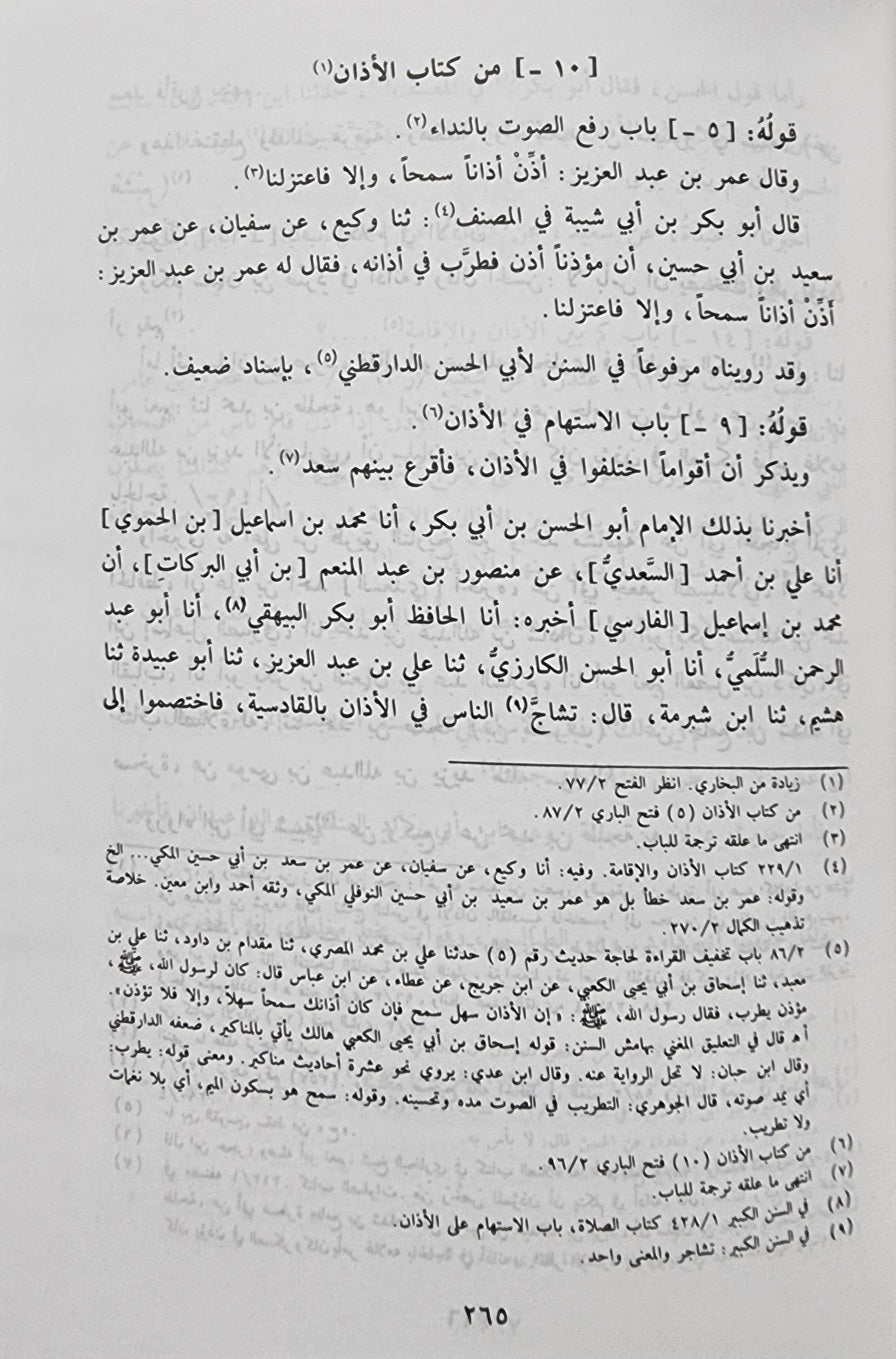 [ ١٠ - ] من كتاب الأذان(١)
قولُهُ: [ ٥ - ] باب رفع الصوت بالنداء(٢).
وقال عمر بن عبد العزيز: أذِّنْ أذاناً سمحاً، وإلا فاعتزلنا(٣).
قال أبو بكر بن أبي شيبة في المصنف(٤): ثنا وكيع، عن سفيان، عن عمر بن
سعيد بن أبي حسين، أن مؤذناً أذن فطرَّب في أذانه، فقال له عمر بن عبد العزيز:
أَذِّنْ أذاناً سمحاً، وإلا فاعتزلنا.
وقد رويناه مرفوعاً في السنن لأبي الحسن الدارقطني(٥)، بإسناد ضعيف.
قولُهُ: [ ٩ - ] باب الاستهام في الأذان(٦).
ويذكر أن أقواماً اختلفوا في الأذان، فأقرع بينهم سعد(٧).
أخبرنا بذلك الإمام أبو الحسن بن أبي بكر، أنا محمد بن اسماعيل [ بن الحموي ]
أنا علي بن أحمد [ السَّعديُّ ]، عن منصور بن عبد المنعم [ بن أبي البركاتِ ]، أن
محمد بن إسماعيل [ الفارسي ] أخبره: أنا الحافظ أبو بكر البيهقي(٨)، أنا أبو عبد
الرحمن السُّلَميُّ، أنا أبو الحسن الكارزيُّ، ثنا علي بن عبد العزيز، ثنا أبو عبيدة ثنا
هشيم، ثنا ابن شبرمة، قال: تشاجَّ(٩) الناس في الأذان بالقادسية، فاختصموا إلى
(١) زيادة من البخاري. انظر الفتح ٧٧/٢.
(٢) من كتاب الأذان (٥) فتح الباري ٨٧/٢.
(٣) انتهى ما علقه ترجمة للباب.
(٤) ٢٢٩/١ كتاب الأذان والإقامة. وفيه: أنا وكيع، عن سفيان، عن عمر بن سعد بن أبي حسين المكي... الخ
وقوله: عمر بن سعد خطأ بل هو عمر بن سعيد بن أبي حسين النوفلي المكي، وثقه أحمد وابن معين. خلاصة
تذهيب الكمال ٢٧٠/٢.
(٥) ٨٦/٢ باب تخفيف القراءة لحاجة حديث رقم (٥) حدثنا علي بن محمد المصري، ثنا مقدام بن داود، ثنا علي بن
معبد، ثنا إسحاق بن أبي يحيى الكعبي، عن ابن جريج، عن عطاء، عن ابن عباس قال: كان لرسول الله، ﷺ،
مؤذن يطرب، فقال رسول الله، ﷺ: « إن الأذان سهل سمح فإن كان أذانك سمحاً سهلاً، وإلا فلا تؤذن».
أ هـ قال في التعليق المغني بهامش السنن: قوله إسحاق بن أبي يحيى الكعبي هالك يأتي بالمناكير، ضعفه الدارقطني
وقال ابن حبان: لا تحل الرواية عنه. وقال ابن عدي: يروي نحو عشرة أحاديث مناكير. ومعنى قوله: يطرب:
أي يمد صوته، قال الجوهري: التطريب في الصوت مده وتحسينه. وقوله: سمح هو بسكون الميم، أي بلا نغمات
ولا تطريب.
(٦) من كتاب الأذان (١٠) فتح الباري ٩٦/٢.
(٧) انتهى ما علقه ترجمة للباب.
(٨) في السنن الكبير ٤٢٨/١ كتاب الصلاة، باب الاستهام على الأذان.
(٩) في السنن الكبير: تشاجر والمعنى واحد.
٢٦٥